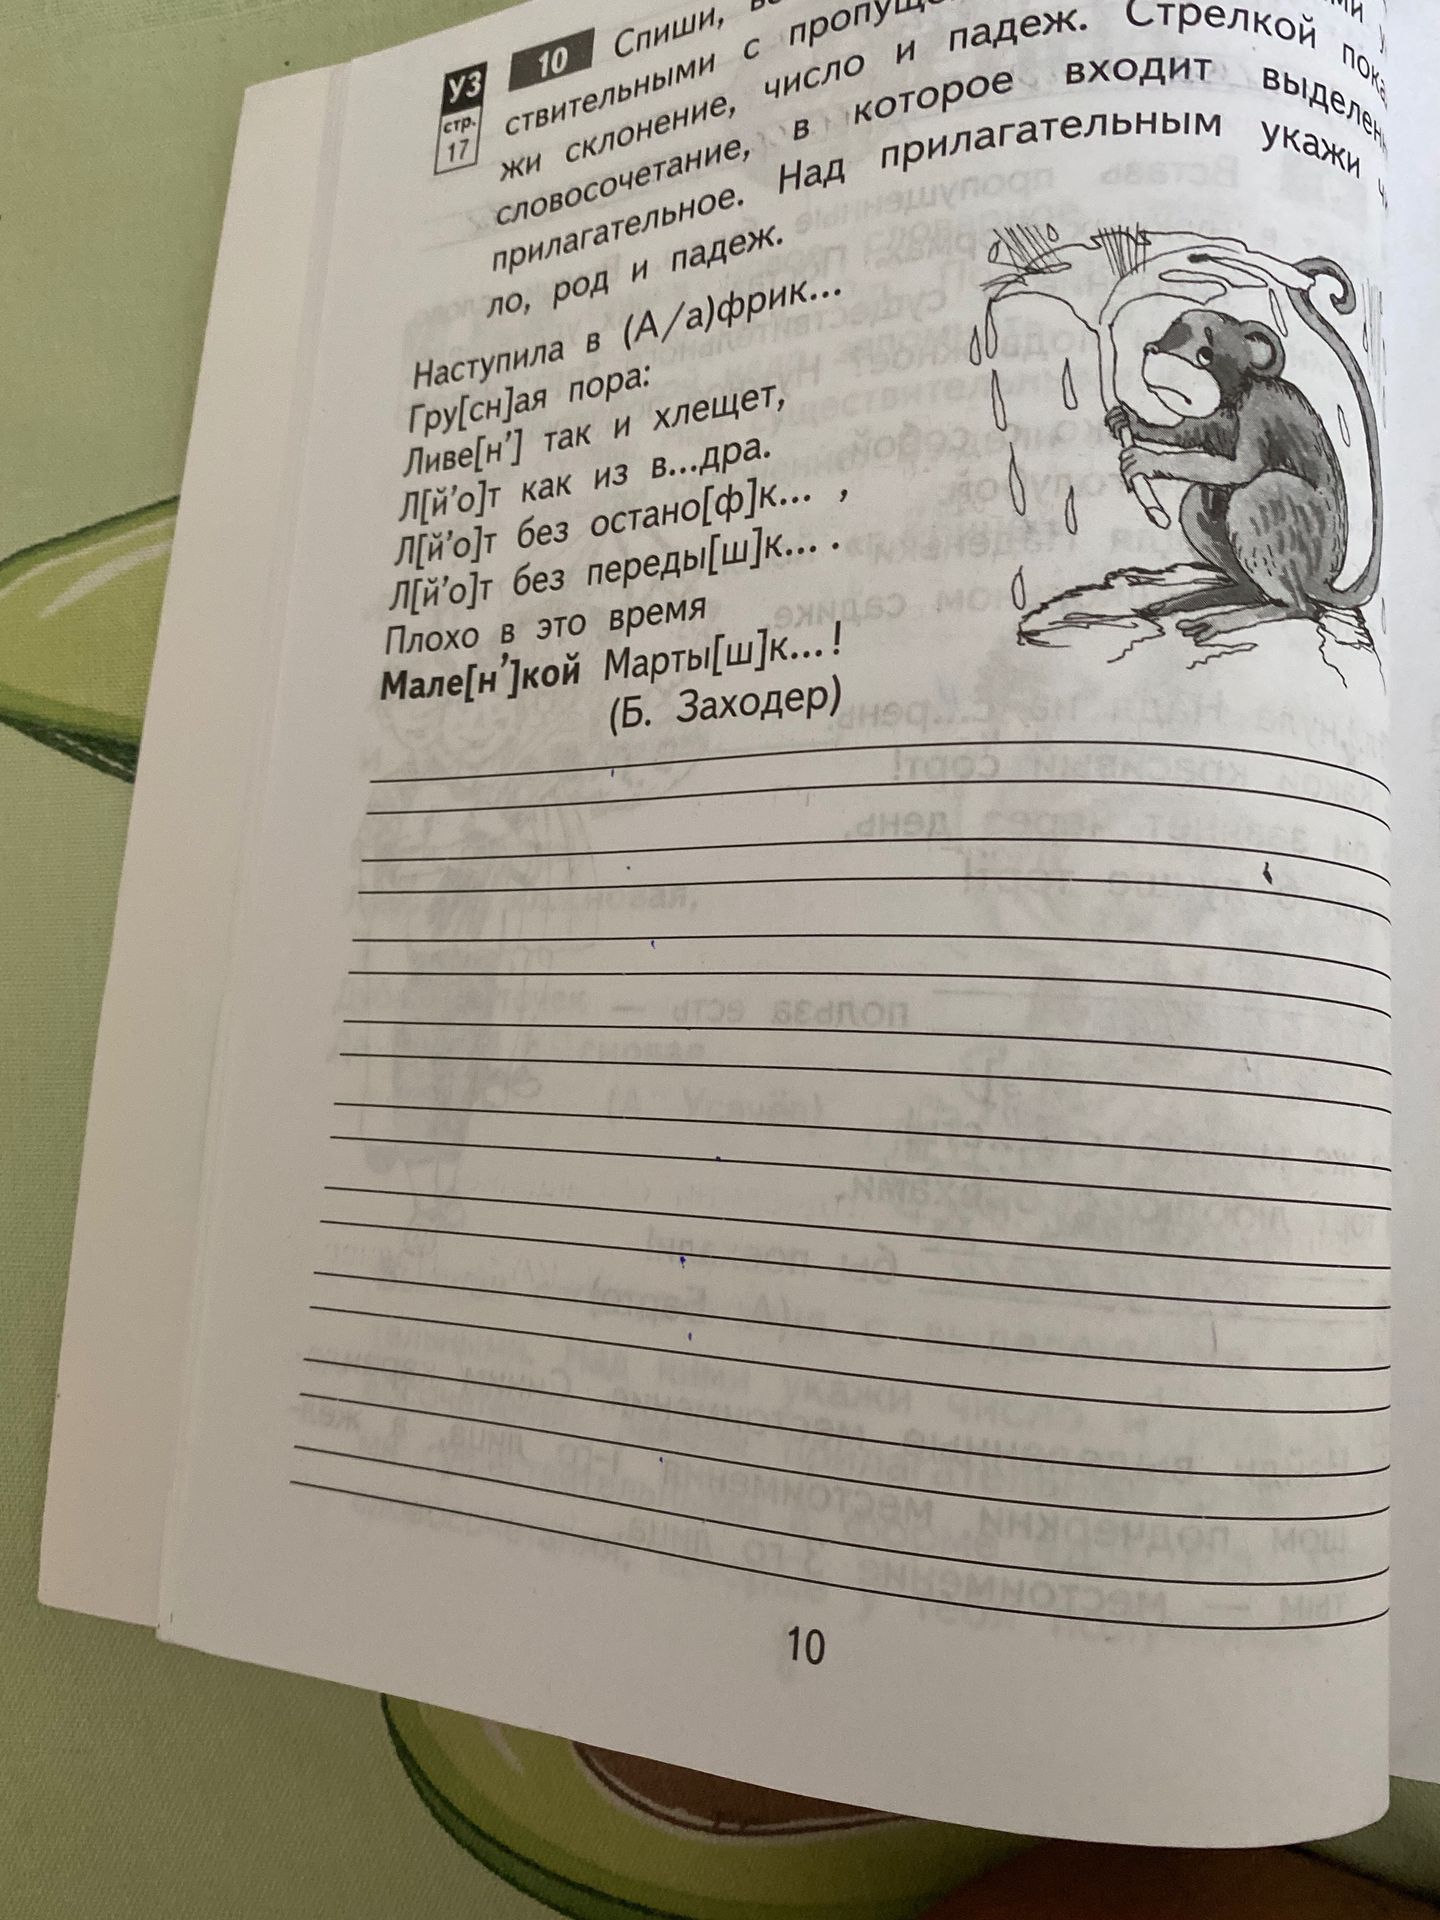 УЗ
стр.
17
10 Спиши,
ствительными с
жи склонение, число и падеж. Стрелкой
словосочетание, в которое входит
прилагательное. Над прилагательным укажи
ло, род и падеж.
Наступила в (А/а)фрик...
Гру[сн]ая пора:
Ливе[н’] так и хлещет,
Л[й’о]т как из в...дра.
Л[й’о]т без остано[ф]к... ,
Л[й’о]т без переды[ш]к... .
Плохо в это время
Мале[н’]кой Марты[ш]к...!
(Б. Заходер)
10